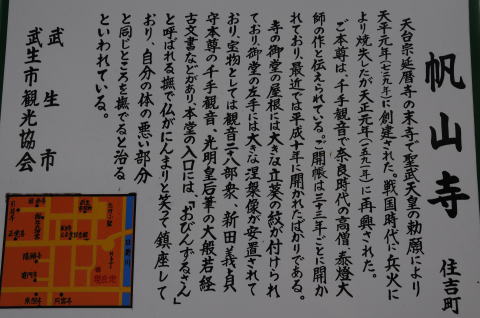 帆山寺
住吉町
天台宗延暦寺の末寺で聖武天皇の勅願により
天平元年(七二九年)に創建された。戦国時代に兵火に
より焼失したが天正元年(一五九一年)に再興された。
ご本尊は、千手観音で奈良時代の高僧、泰燈大
師の作と伝えられている。ご開帳は三十三年ごとに開か
れており、最近では平成十年に開かれたばかりである。
寺の御堂の屋根には大きな立葵の紋が付けられ
ており御堂の左手には大きな涅槃像が安置されて
おり、宝物としては観音二十八部衆、新田義貞
守本尊の千手観音、光明皇后筆の大般若経
古文書などがあり、本堂の入口には、「おびんずるさん」
と呼ばれる撫で仏がにんまりと笑って鎮座して
おり、自分の体の悪い部分
と同じところを撫でると治る
といわれている。
武生市
武生市観光協会
現在地